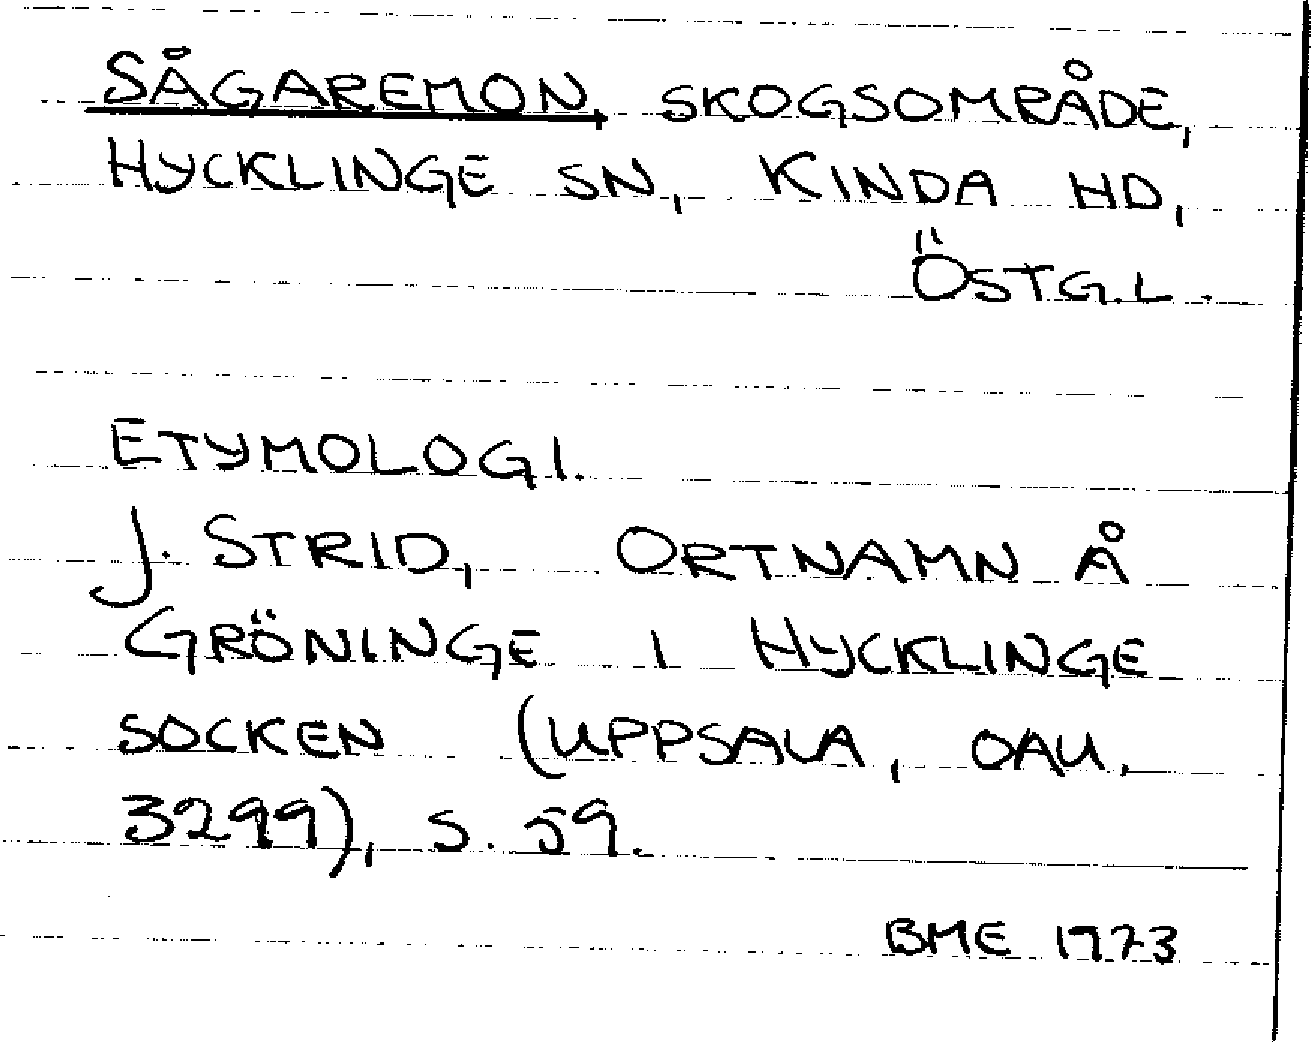 SÅGAREMON, SKOGSOMRÅDE,
HYCKLINGE SN, KINDA HD,
ÖSTG.L.
ETYMOLOGI.
J. STRID, ORTNAMN Å
GRÖNINGE I HYCKLINGE
SOCKEN (UPPSALA, OAU,
3299), S. 59.
BME 1973